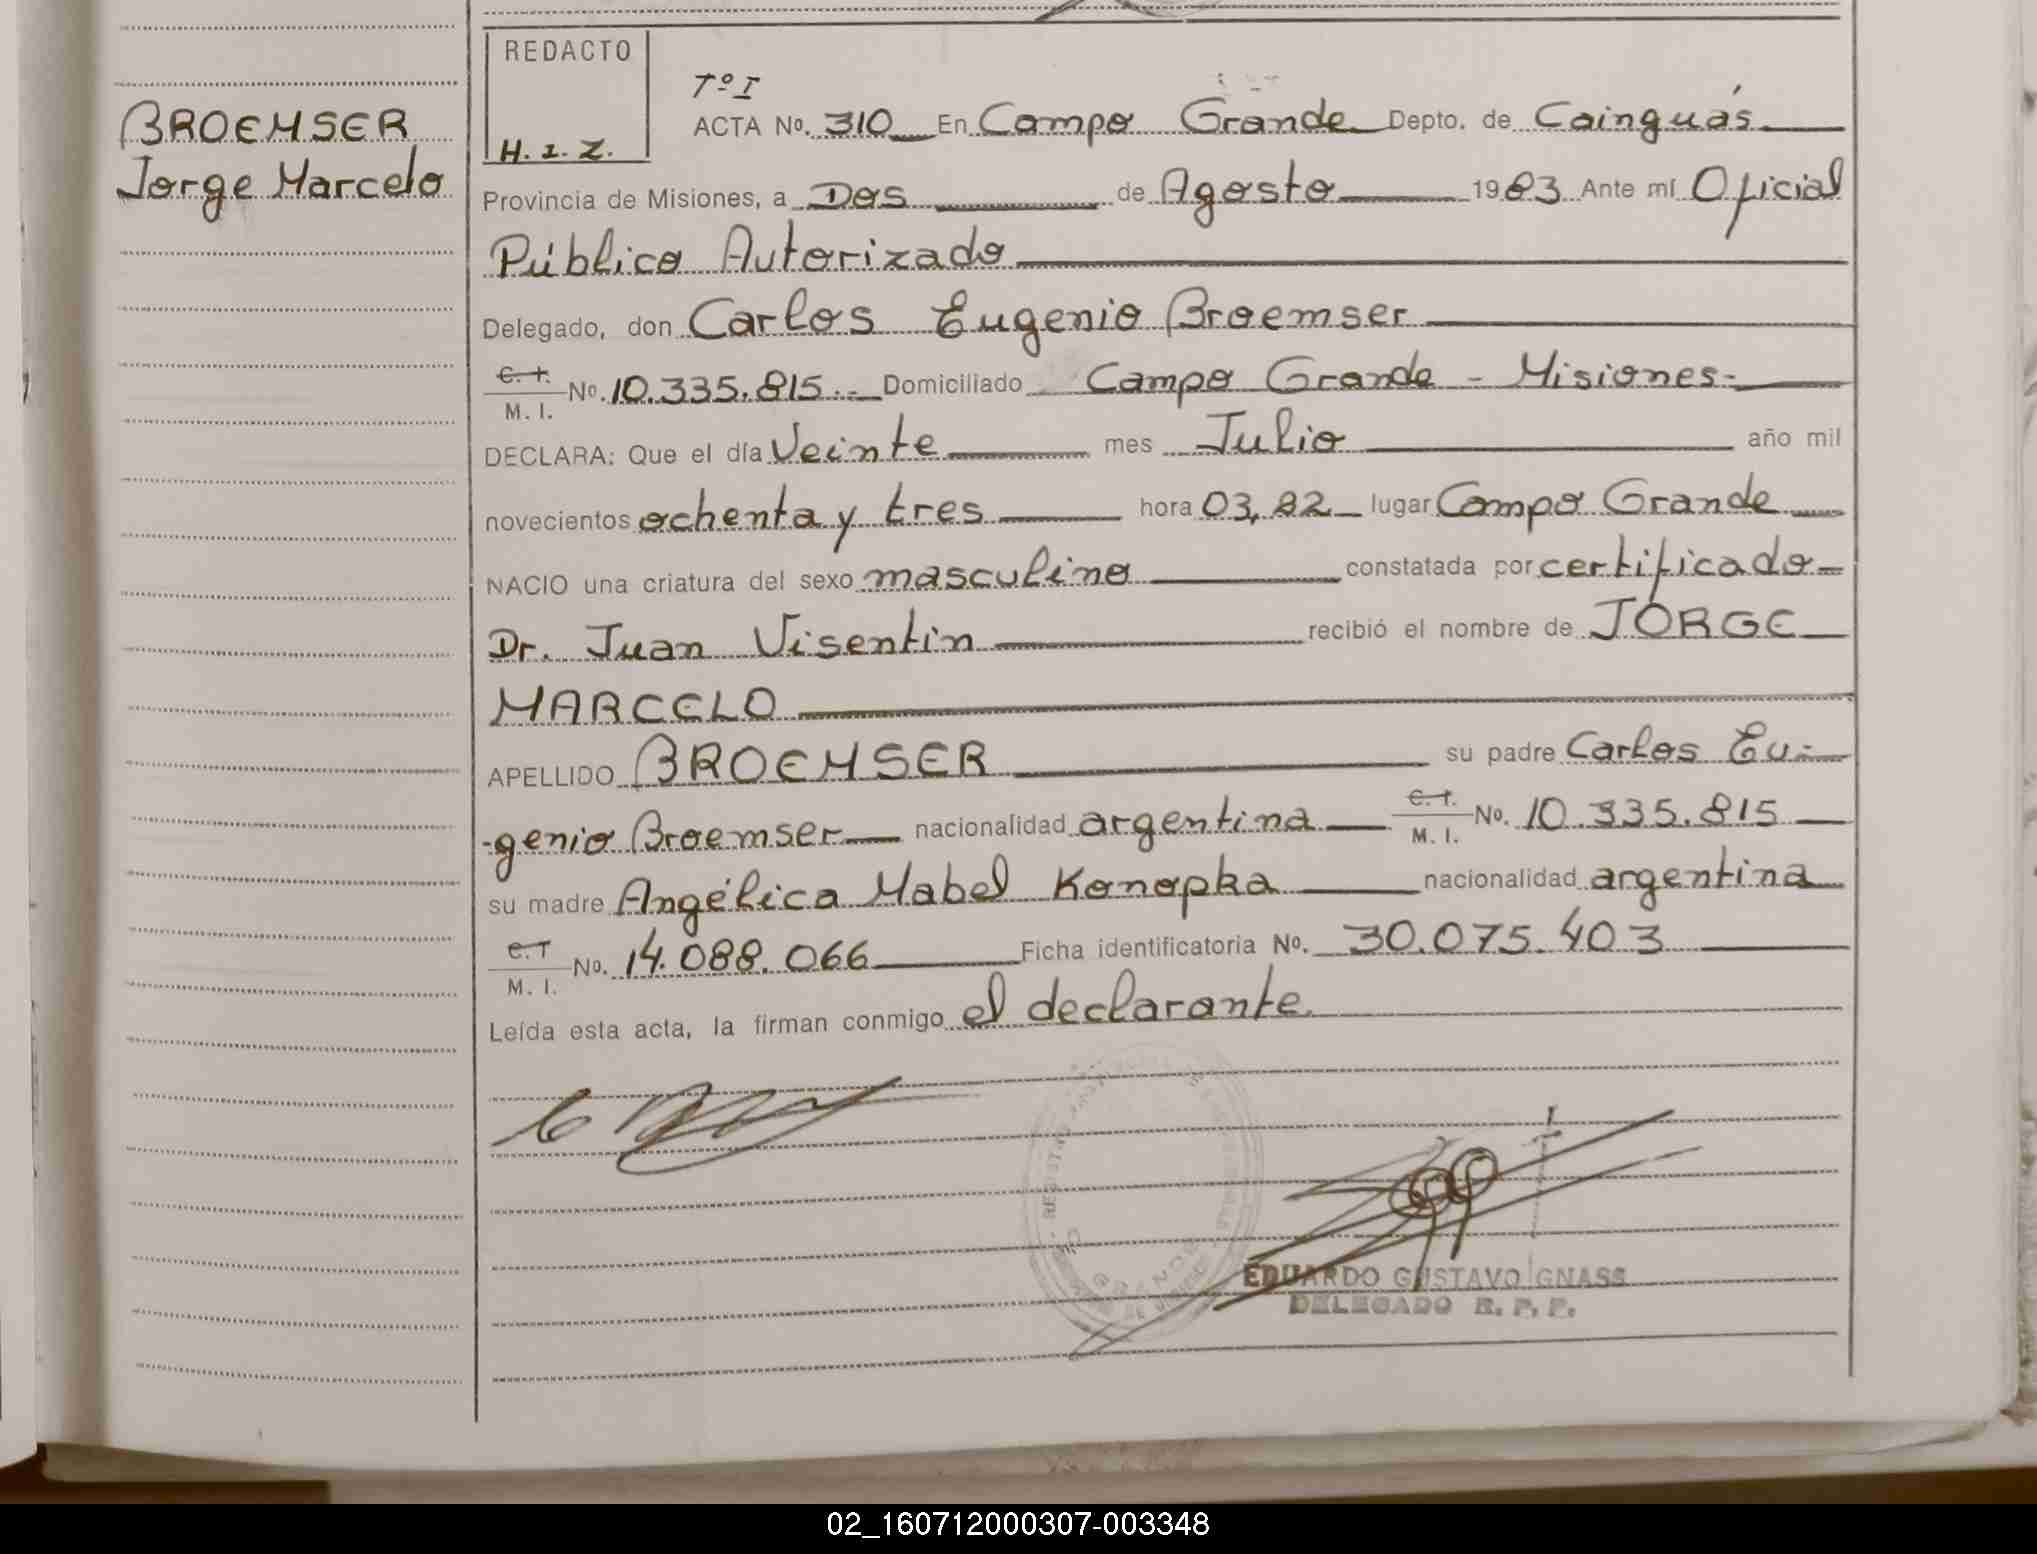 BROEMSER
Jorge Marcelo
REDACTO
H. I. Z.
Tº I
ACTA Nº. 310 En Campo Grande Depto. de Cainguás
Provincia de Misiones, a Dos de Agosto 1983 Ante mí Oficial
Público Autorizado
Delegado, don Carlos Eugenio Broemser
C. I. M. I. Nº. 10.335.815.- Domiciliado Campo Grande - Misiones-
DECLARA: Que el día Veinte mes Julio año mil
novecientos ochenta y tres hora 03,22 lugar Campo Grande
NACIO una criatura del sexo masculino constatada por certificado
Dr. Juan Visentin recibió el nombre de JORGE
MARCELO
APELLIDO BROEMSER su padre Carlos Eu-
-genio Broemser nacionalidad argentina C. I. M. I. Nº. 10.335.815
su madre Angélica Mabel Konopka nacionalidad argentina
C. I M. I. Nº. 14.088.066 Ficha identificatoria Nº. 30.075.403
Leída esta acta, la firman conmigo el declarante
EDUARDO GUSTAVO GNASS
DELEGADO R. P. P.
02_160712000307-003348